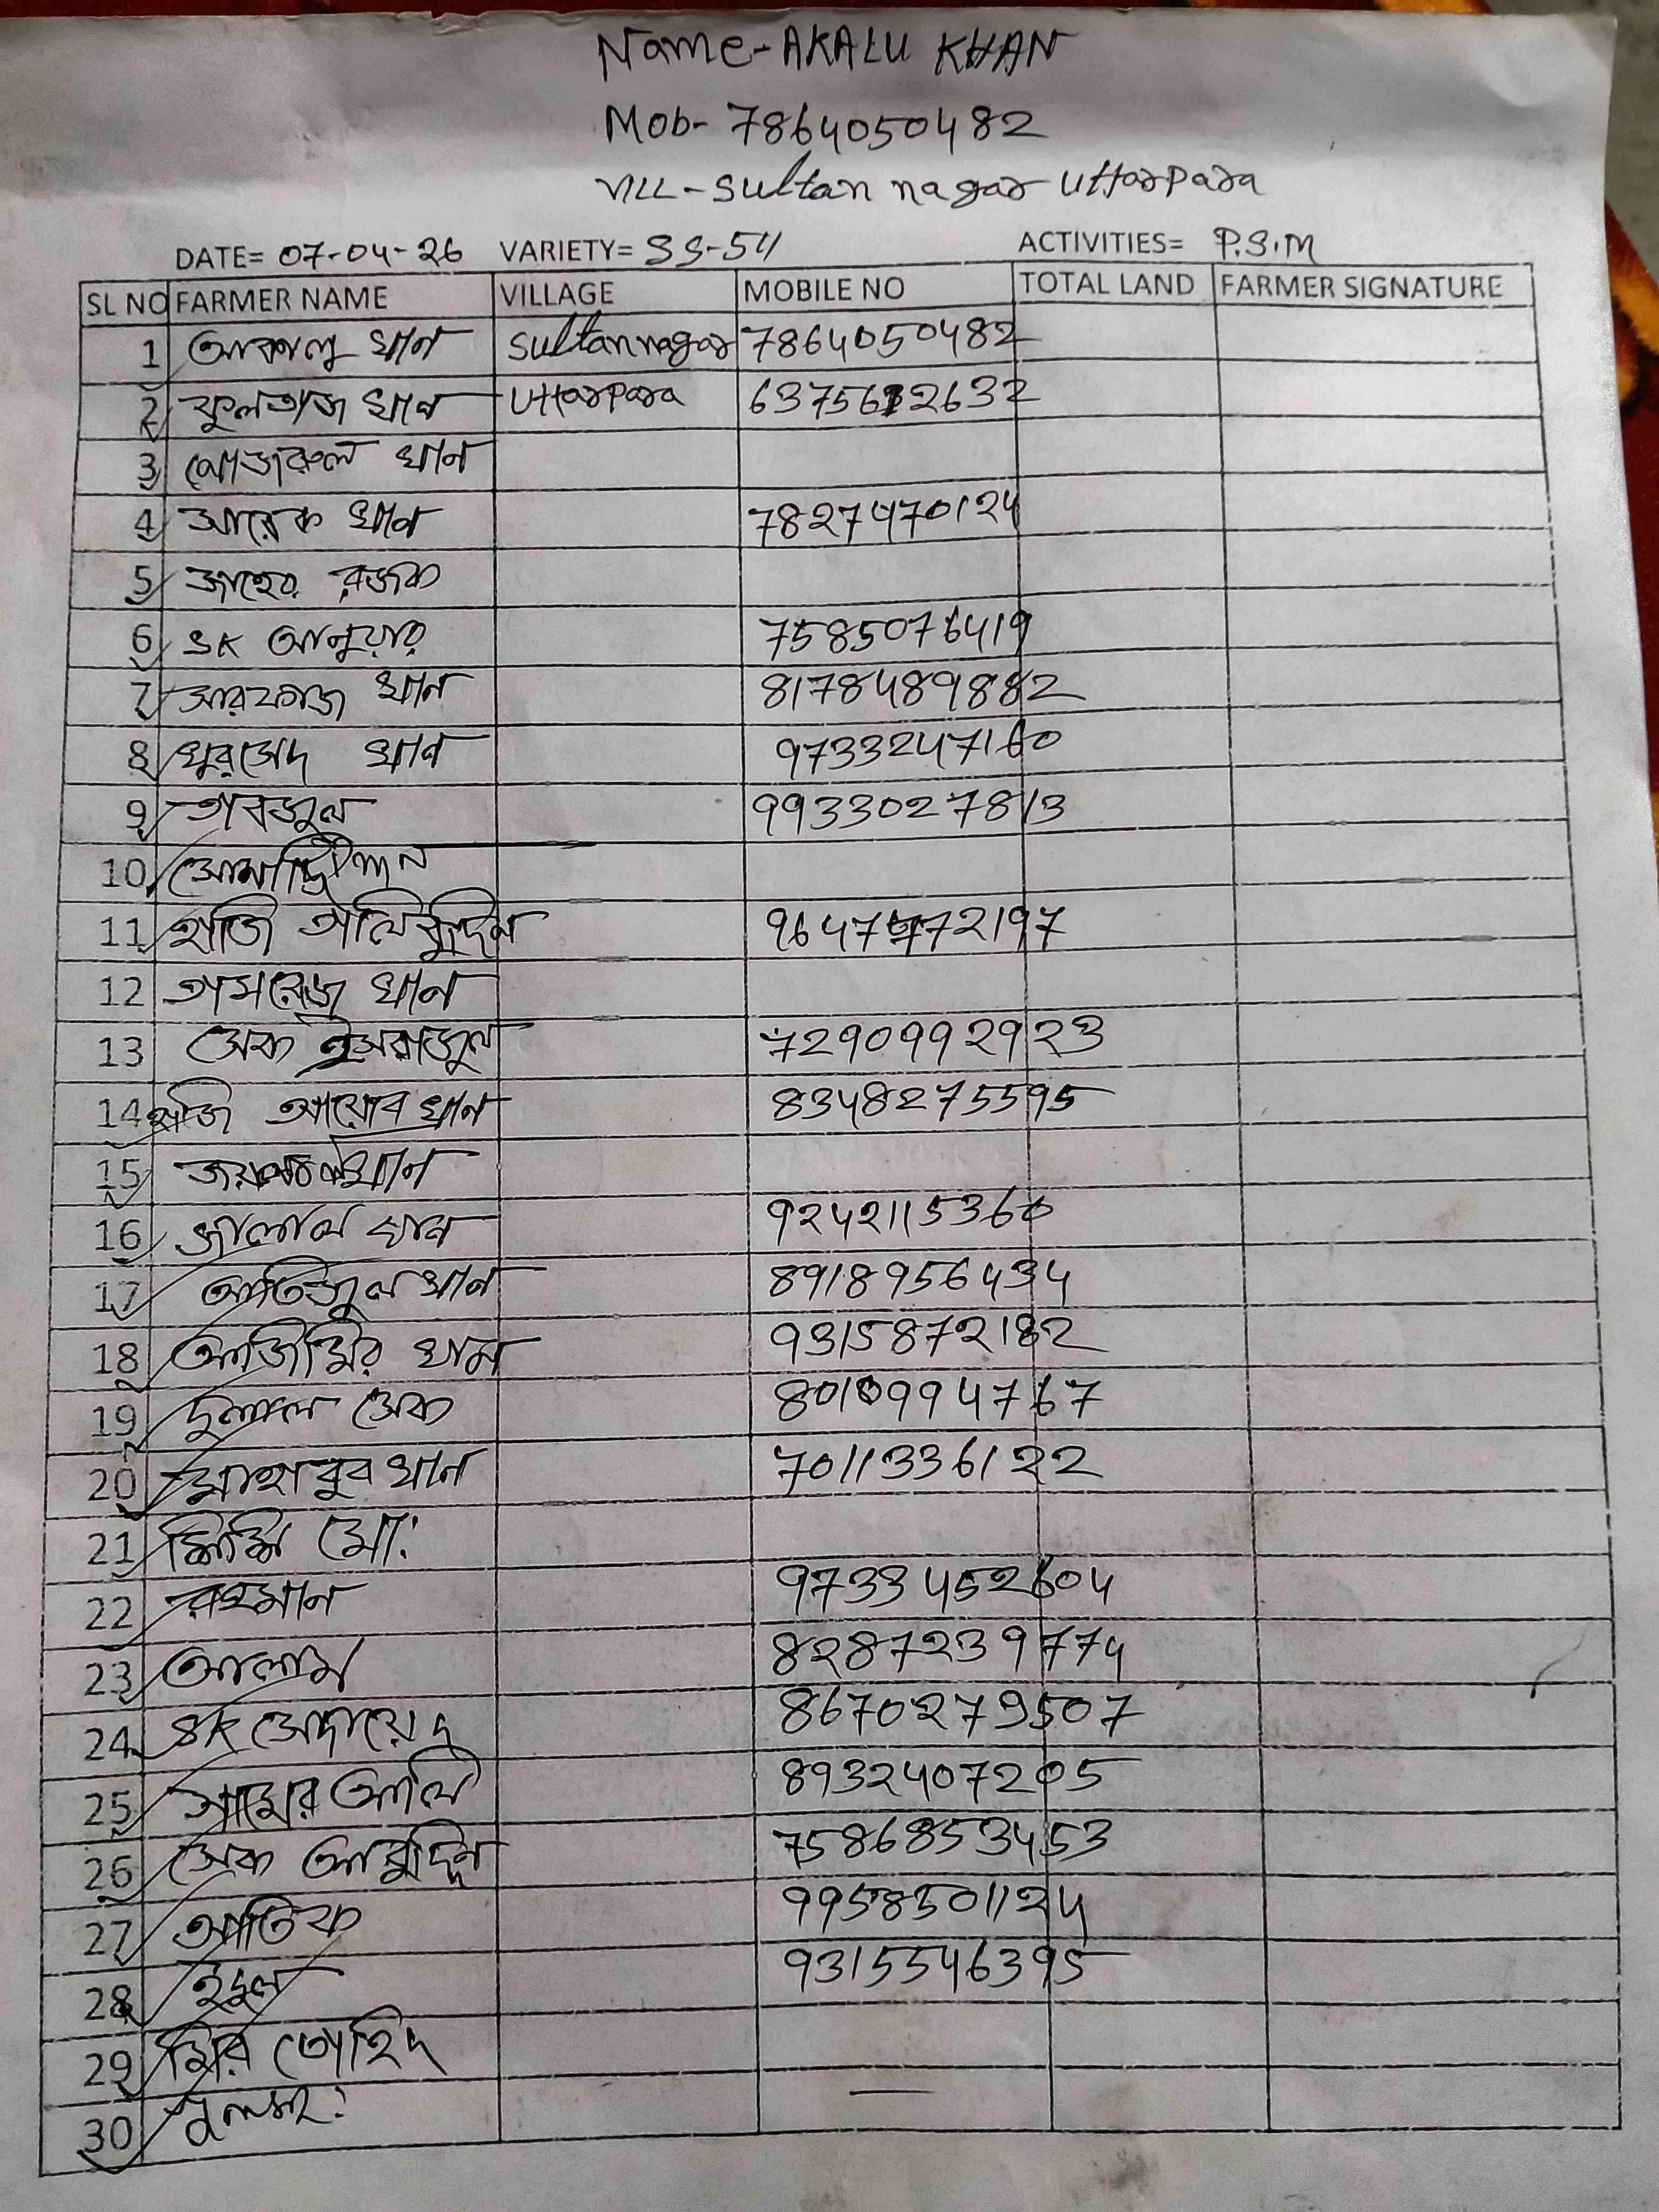 Name-AKALU KHAN
Mob- 7864050482
VILL-Sultan nagar Uttarpara
DATE= 07-04-26 VARIETY= SS-54 ACTIVITIES= P.S.M
SL NO FARMER NAME VILLAGE MOBILE NO TOTAL LAND FARMER SIGNATURE
1 আকালু খান Sultannagar 7864050482
2 ফুলতাজ খান Uttarpara
3 খান
4 খান 7827470124
5 জাহের রজক
6 SK আনুয়ার 7585076419
7 সারফরাজ খান 8178489882
8 খুরসেদ খান 9733247160
9 তাবজুল 9933027813
10
11 হাজি
12 তামরেজ খান
13 সেক ইসরাজুল 7290992923
14 হাজি আয়োব খান 8348275595
15 খান
16 জালাল খান 9242115360
17 আতিজুল খান 8918956434
18 খান 9315872182
19 দুলাল সেক 8010994767
20 মাহাবুব খান 7011336122
21 মো:
22 রহমান 9733452604
23 আলাম 8287239774
24 SK 8670279507
25 আলি 8932407205
26 সেক 7586853453
27 আতিক 9958501124
28 9315546395
29 মির তোহিদ
30